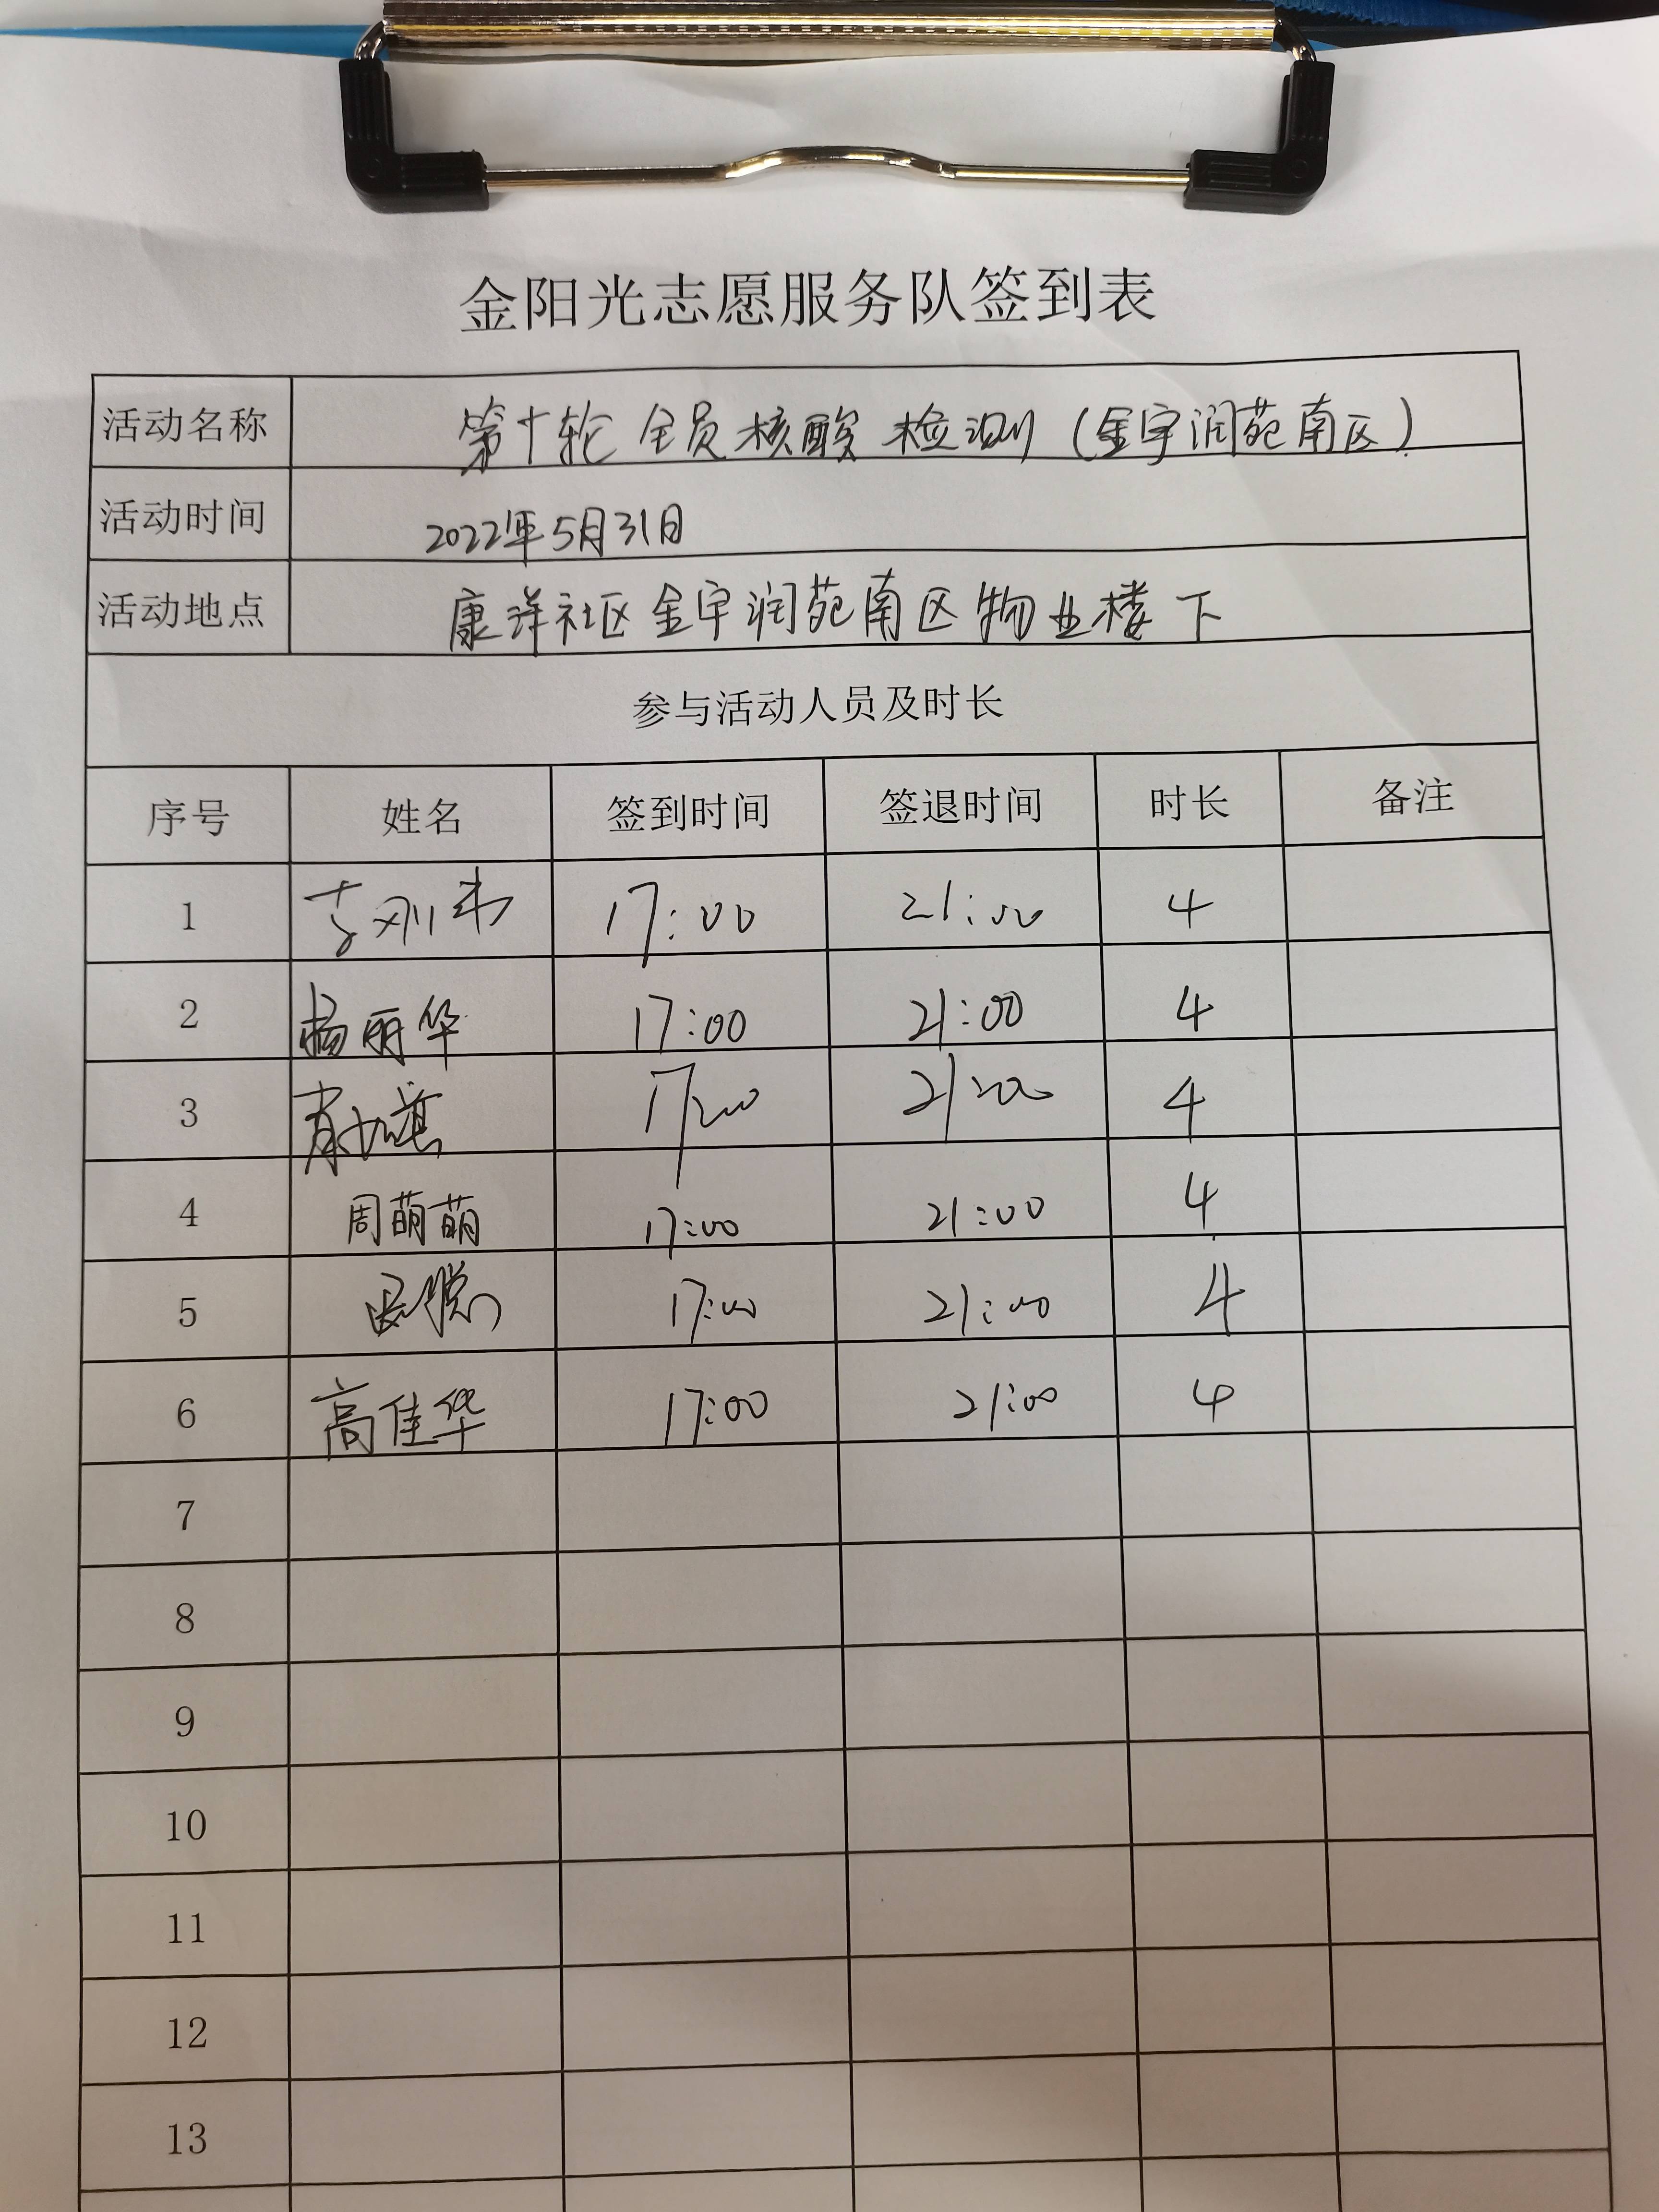 金阳光志愿服务队签到表
活动名称 第十轮全员核酸检测(金宇润苑南区)
活动时间 2022年5月31日
活动地点 康洋社区金宇润苑南区物业楼下
参与活动人员及时长
序号 姓名 签到时间 签退时间 时长 备注
1 李刚 17:00 21:00 4
2 杨丽华 17:00 21:00 4
3 17:00 21:00 4
4 周萌萌 17:00 21:00 4
5 17:00 21:00 4
6 高佳华 17:00 21:00 4
7
8
9
10
11
12
13